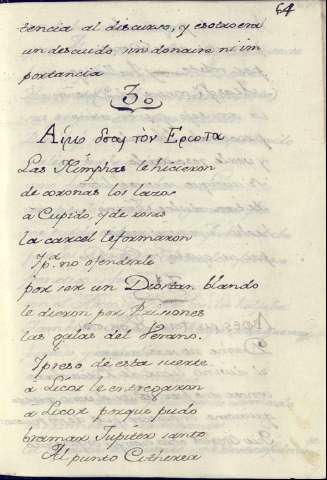 64
tencia al discurso, y esotro era
un descuido sin donaire ni im
portancia
3o
Αἱ
τὸν Ερωτα
Las Nimphas le hicieron
de coronas los lazos
a Cupido, y de rosas
la carcel le formaron
Ipa. no ofenderle
por ser un Dios tan blando
le dieron por Prisiones
las galas del Verano.
I preso de esta suerte
a Licos le entregaron
a Licos porque pudo
bramar Jupiter santo
Al punto Citherea